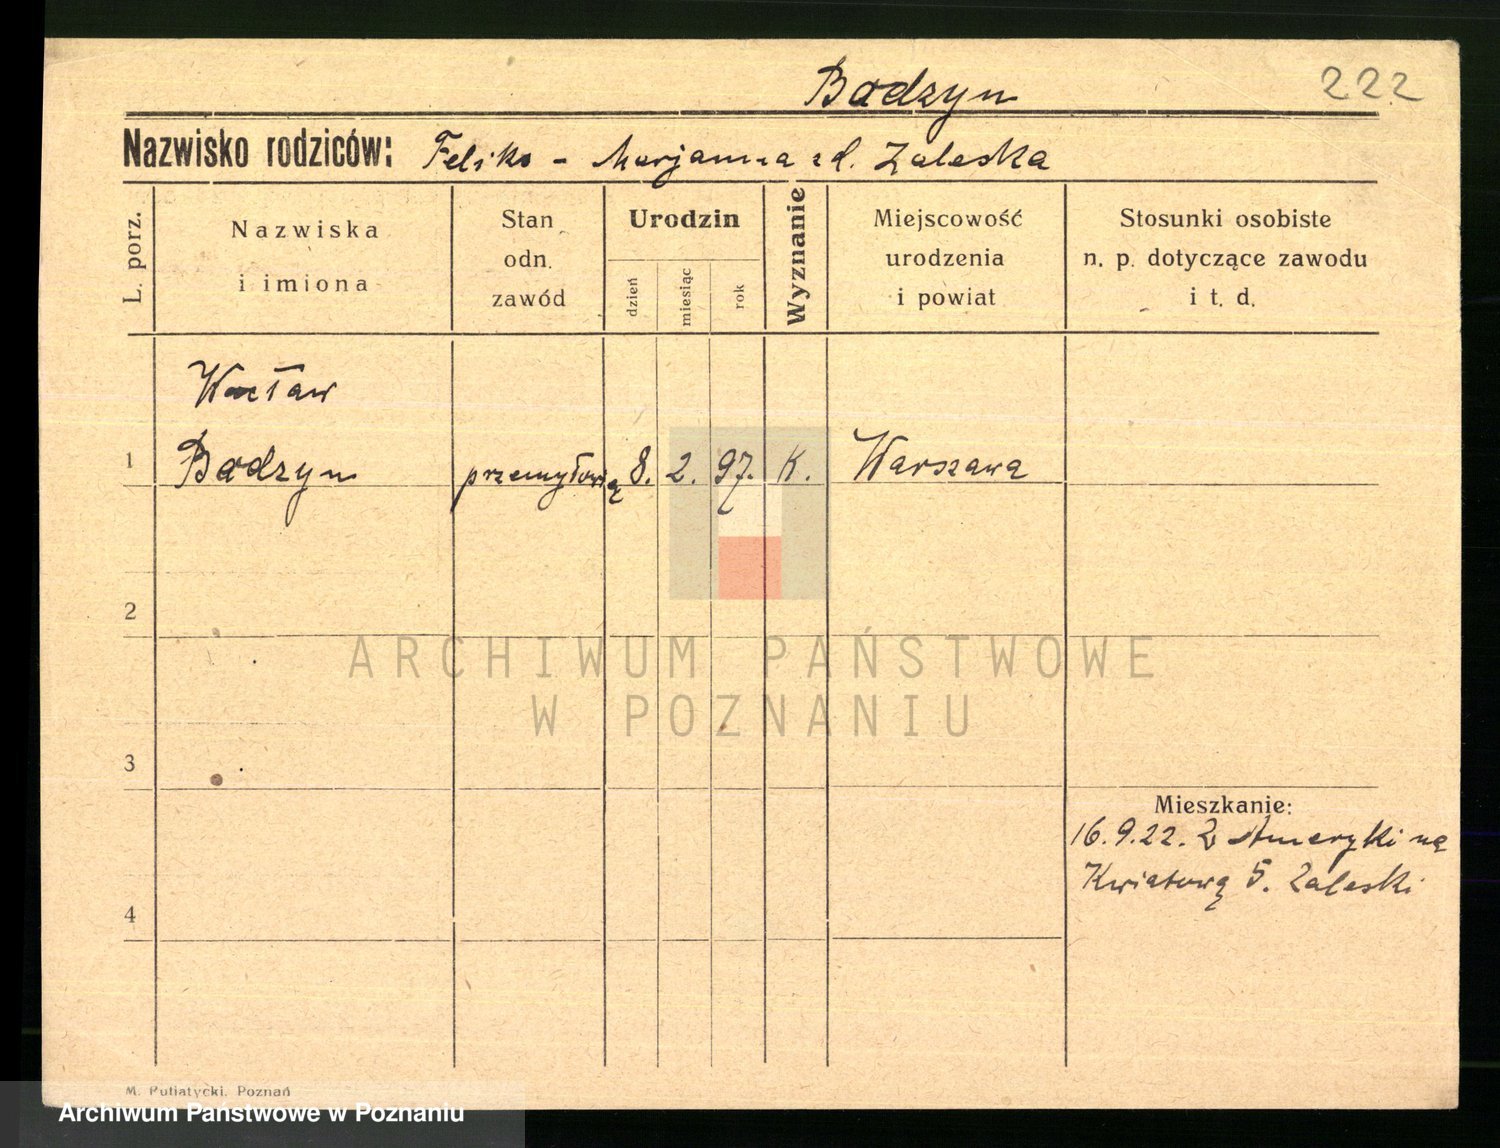 Badzyn
222
Nazwisko rodziców: Feliks - Marjanna zd. Zaleska
L. porz.
Nazwiska
i imiona
Stan
odn.
zawód
Urodzin
dzień
miesiąc
rok
Wyznanie
Miejscowość
urodzenia
i powiat
Stosunki osobiste
n. p. dotyczące zawodu
i t. d.
Wacław
1 Badzyn 8. 2. 97. K. Warszawa
2
ARCHIWUM PAŃSTWOWE
W POZNANIU
3
Mieszkanie:
16.9.22. Z Ameryki na
Kwiatową 5. Zaleski
4
M. Putiatycki, Poznań
Archiwum Państwowe w Poznaniu